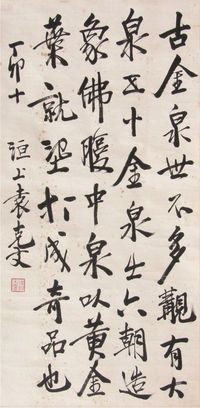 古金泉世不多覯有大
泉五十金泉出六朝造
象佛腹中泉以黄金
葉就塑
成奇品也
丁卯十
洹上袁克文